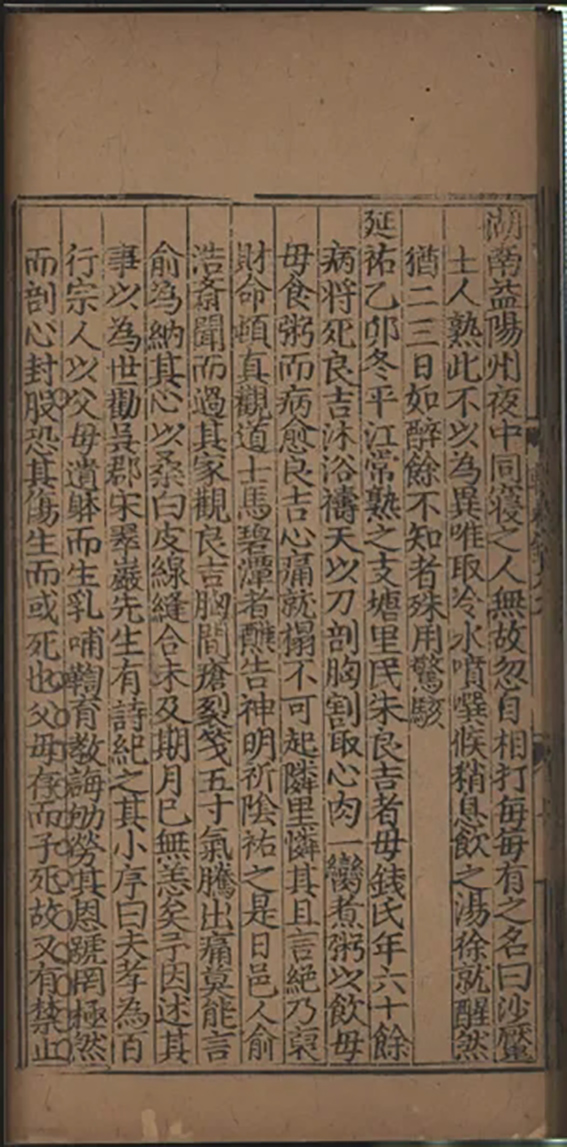 湖南益陽州夜中同寢之人無故忽自相打每每有之名曰沙魘
士人熟此不以為異唯取冷水噴噀候稍息飲之湯徐就醒然
猶二三日如醉餘不知者殊用驚駭
延祐乙卯冬平江常熟之支塘里民朱良吉者母錢氏年六十餘
病将死良吉沐浴禱天以刀剖胸割取心肉一臠煮粥以飲母
母食粥而病愈良吉心痛就榻不可起隣里憐其且言絶乃裒
財命頓真觀道士馬碧潭者醮告神明祈陰祐之是日邑人俞
浩斎聞而過其家觀良吉胸間瘡裂笺五寸氣騰出痛莫能言
俞為納其心以桑白皮線縫合未及期月已無恙矣予因述其
事以為世勸吳郡宋翠巖先生有詩紀之其小序曰夫孝為百
行宗人以父母遺躰而生乳哺鞠育教誨劬勞其恩號罔極然
而剖心刲股恐其傷生而或死也父母存而子死故又有禁止